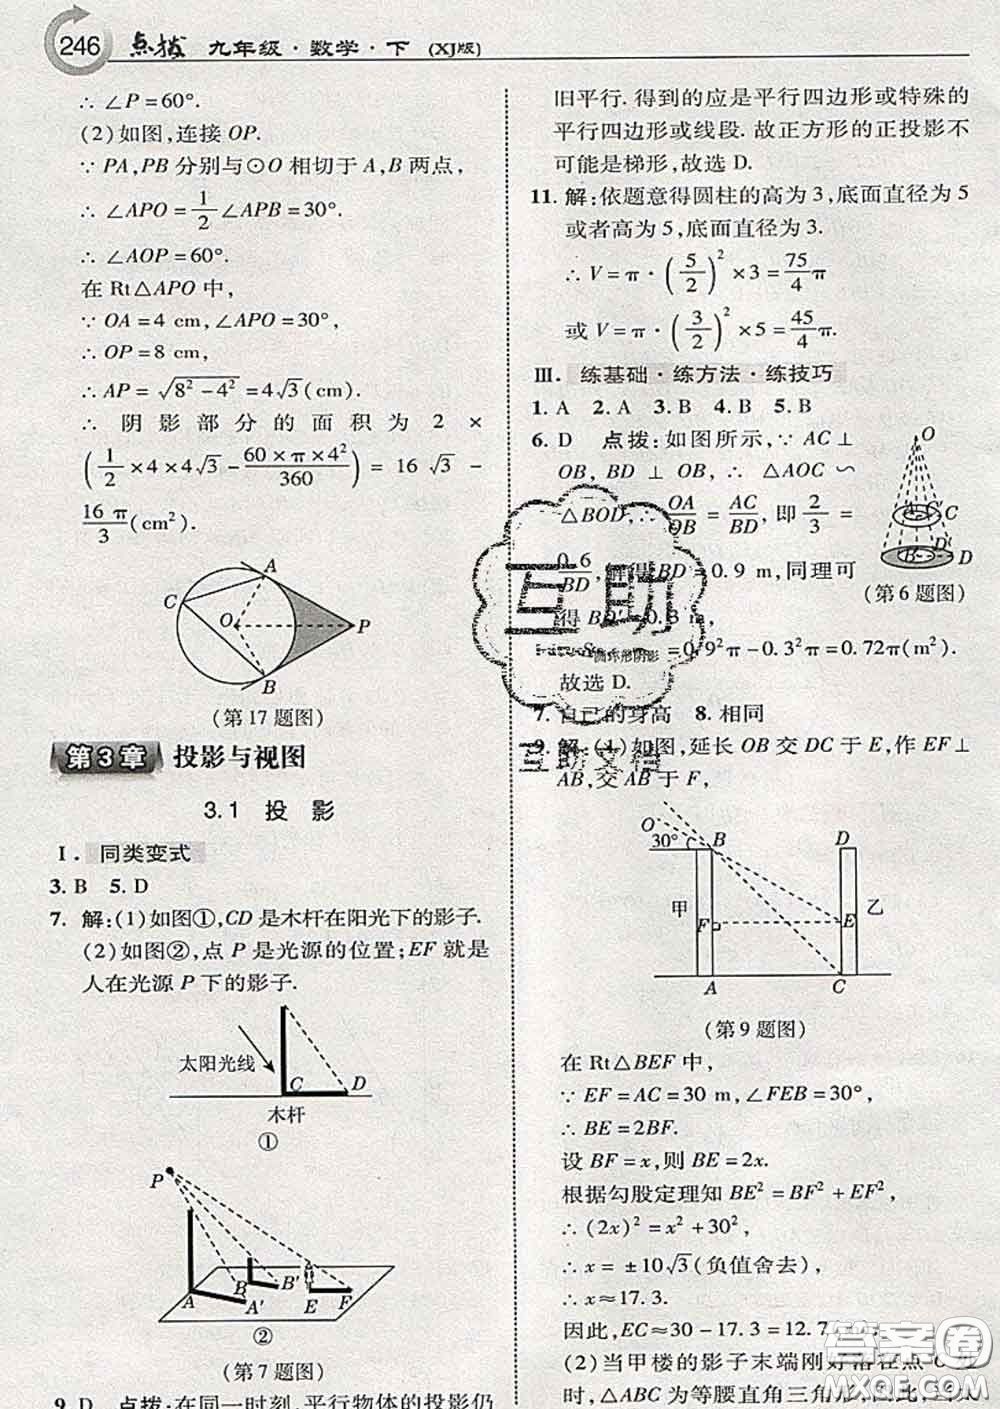 246 点拨 九年级·数学·下 (XJ版)
∴ ∠P=60°.
(2)如图,连接 OP.
∵ PA,PB 分别与⊙O 相切于 A,B 两点,
∴ ∠APO=1/2∠APB=30°.
∴ ∠AOP=60°.
在 Rt△APO 中,
∵ OA=4 cm,∠APO=30°,
∴ OP=8 cm,
∴ AP=√(8²-4²)=4√3(cm).
∴ 阴影部分的面积为 2×
(1/2×4×4√3-(60×π×4²)/360)=16√3-
16π/3(cm²).
A
C
O
P
B
(第17题图)
第3章 投影与视图
3.1 投影
Ⅰ. 同类变式
3. B 5. D
7. 解:(1)如图①,CD 是木杆在阳光下的影子.
(2)如图②,点 P 是光源的位置;EF 就是
人在光源 P 下的影子.
太阳光线
C D
木杆
①
P
A B A' B' E F
②
(第7题图)
9. D 点拨:在同一时刻,平行物体的投影仍
旧平行. 得到的应是平行四边形或特殊的
平行四边形或线段. 故正方形的正投影不
可能是梯形,故选 D.
11. 解:依题意得圆柱的高为 3,底面直径为 5
或者高为 5,底面直径为 3.
∴ V=π·(5/2)²×3=75/4π
或 V=π·(3/2)²×5=45/4π.
Ⅲ. 练基础·练方法·练技巧
1. A 2. A 3. B 4. B 5. B
6. D 点拨:如图所示,∵ AC⊥
OB, BD⊥OB, ∴ △AOC∽
△BOD,∴ OA/OB=AC/BD,即 2/3=
0.6/BD,解得 BD=0.9 m,同理可
得 BD'=0.3 m,
=0.9²π-0.3²π=0.72π(m²).
故选 D.
O
A C
B D' D
(第6题图)
7. 自己的身高 8. 相同
9. 解:(1)如图,延长 OB 交 DC 于 E,作 EF⊥
AB,交 AB 于 F,
O
30° B D
甲 F E 乙
A C
(第9题图)
在 Rt△BEF 中,
∵ EF=AC=30 m,∠FEB=30°,
∴ BE=2BF.
设 BF=x,则 BE=2x.
根据勾股定理知 BE²=BF²+EF²,
∴ (2x)²=x²+30²,
∴ x=±10√3(负值舍去),
∴ x≈17.3.
因此,EC≈30-17.3=12.7
(2)当甲楼的影子末端刚好落在点 C 处
时,△ABC 为等腰直角三角形,因此,
互助
互助文档
答案圈